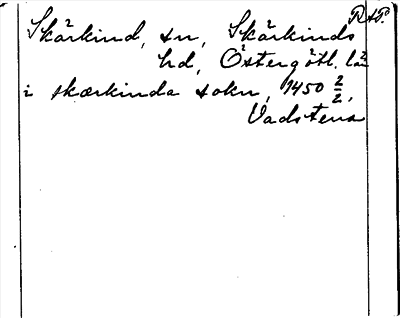 R:sP.
Skärkind, sn, Skärkinds
hd, Östergötl. lä
i skærkinda sokn, 1450 2/2,
Vadstena